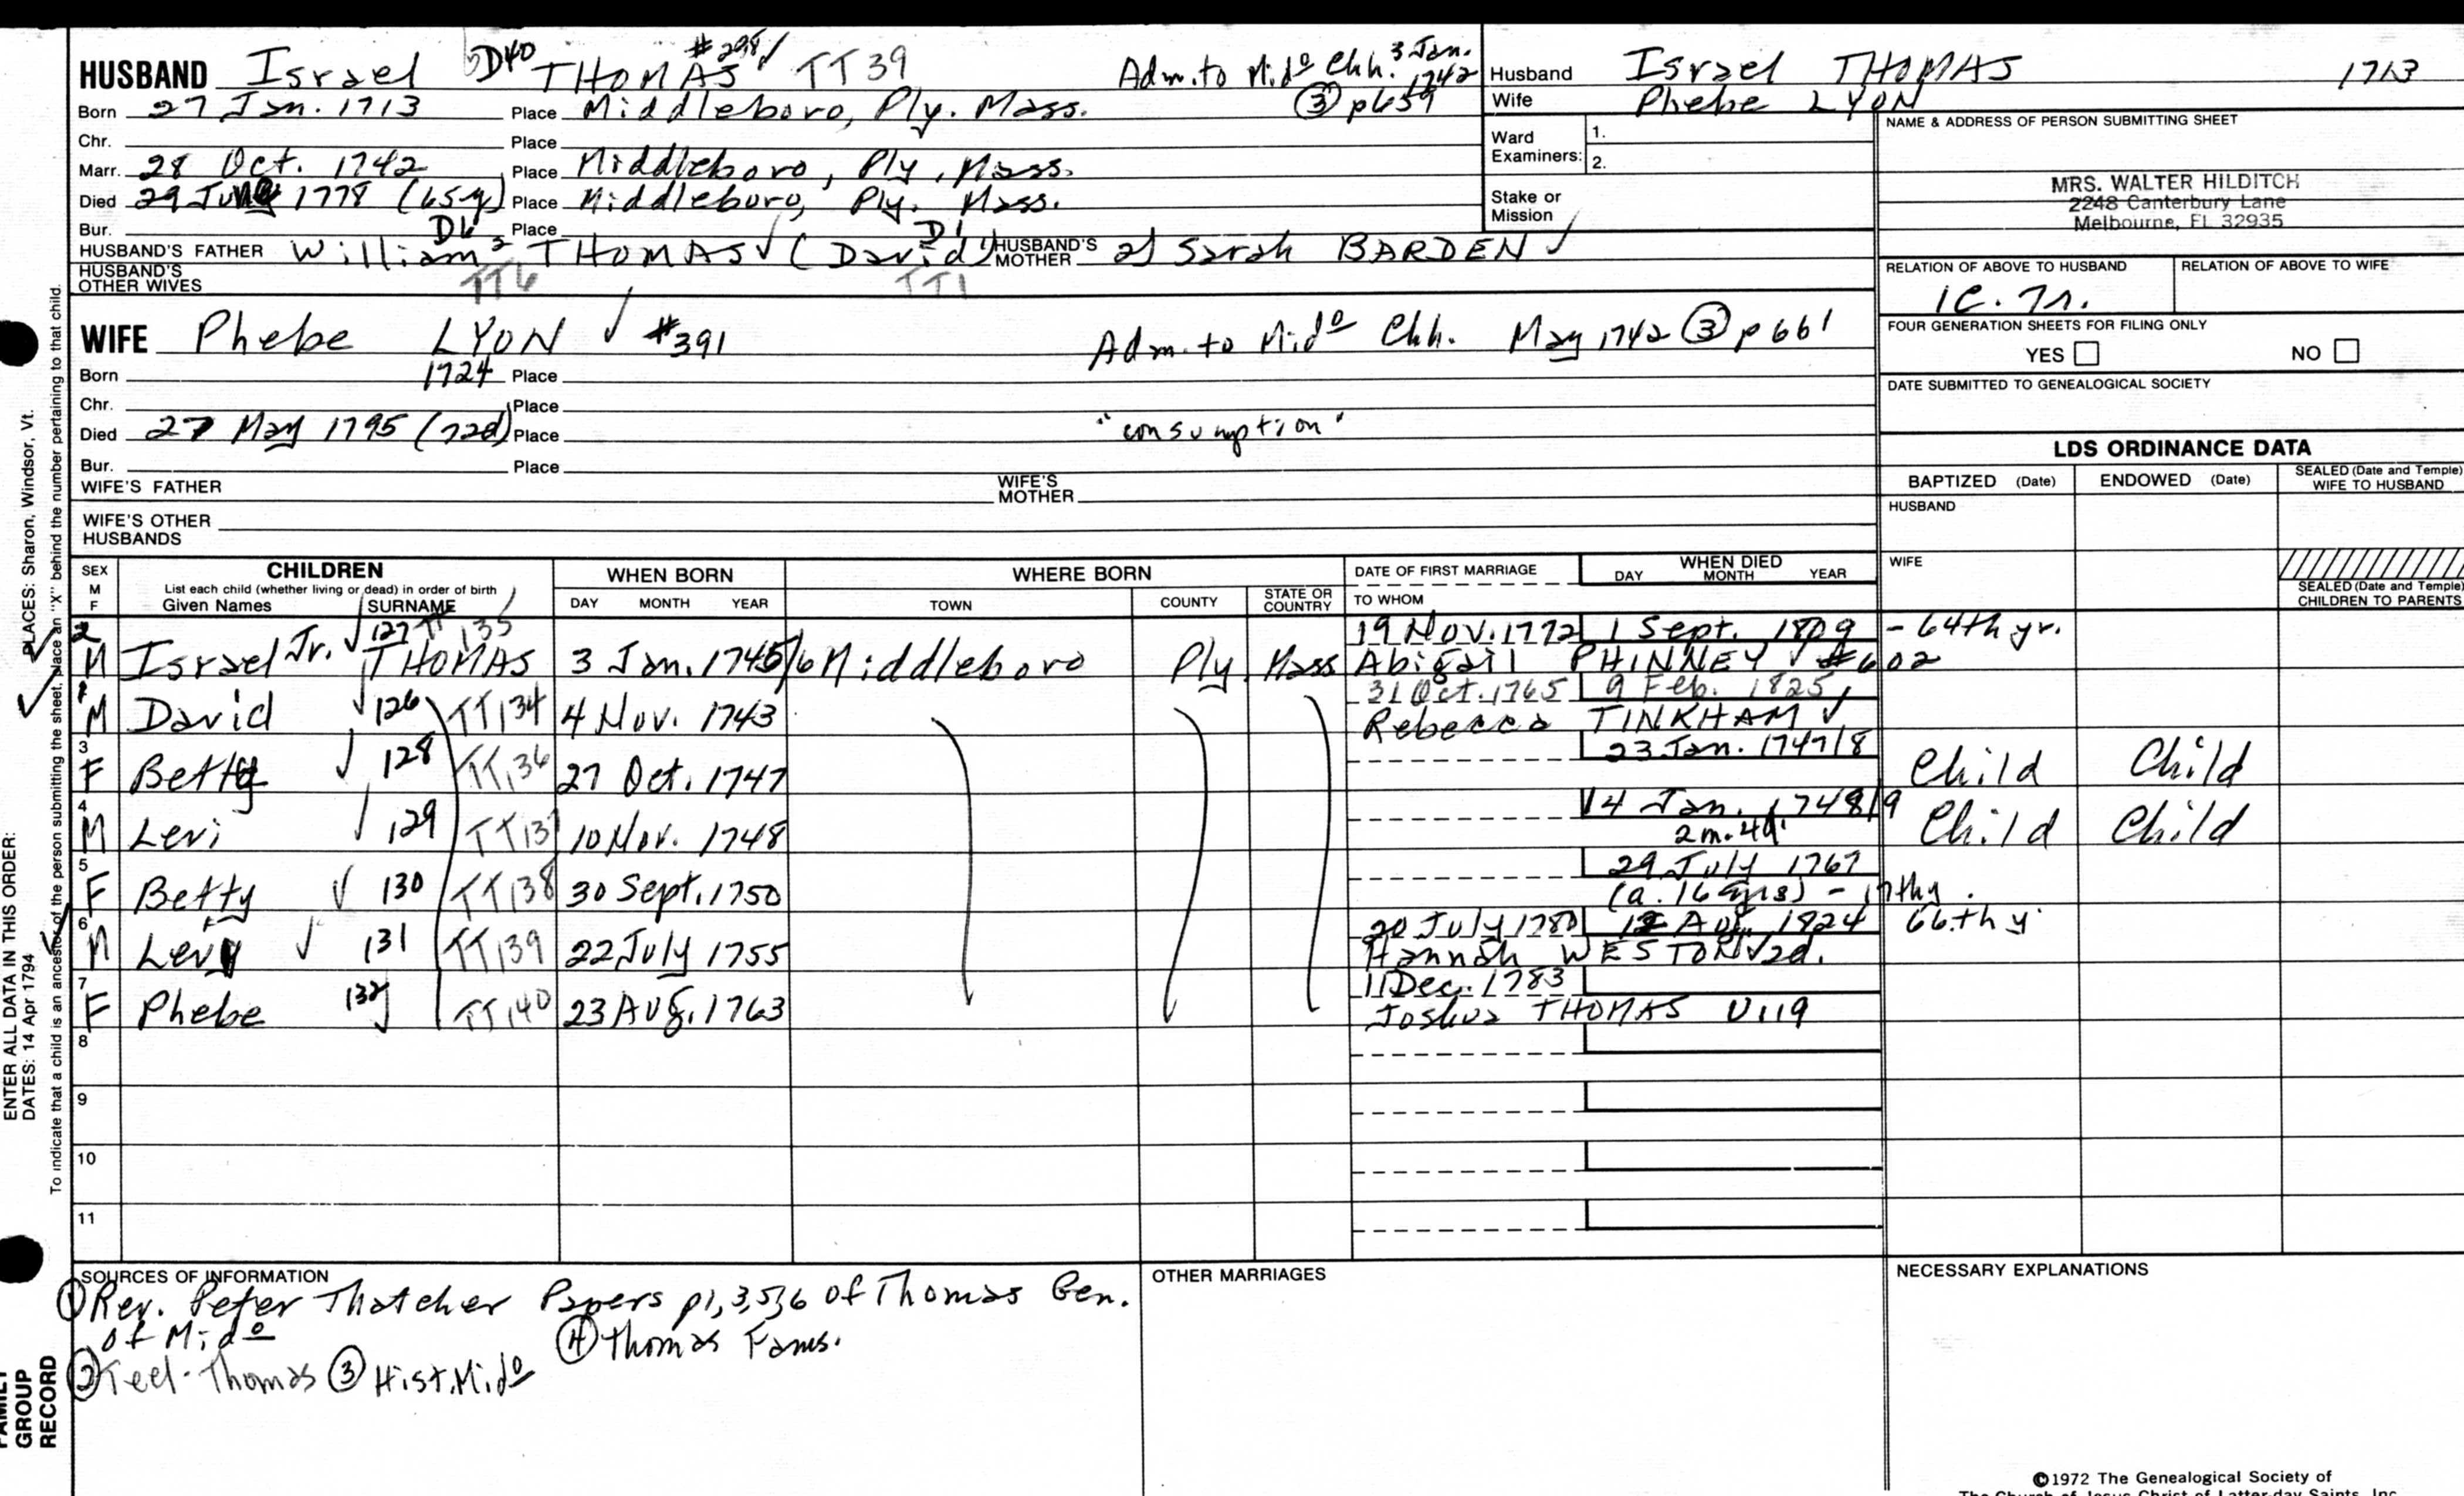 HUSBAND Israel D40 THOMAS #298 TT39 Adm. to Mido Chh. 3 Jan. 1742 ③ p659
Born 27 Jan. 1713 Place Middleboro, Ply. Mass.
Chr. Place
Marr. 28 Oct. 1742 Place Middleboro, Ply. Mass.
Died 29 June 1778 (65y) Place Middleboro, Ply. Mass.
Bur. Place
HUSBAND'S FATHER William D6 THOMAS (David D1) HUSBAND'S MOTHER 2) Sarah BARDEN
HUSBAND'S OTHER WIVES TT6 TT1
Husband Israel THOMAS 1713
Wife Phebe LYON
Ward Examiners: 1.
2.
Stake or Mission
NAME & ADDRESS OF PERSON SUBMITTING SHEET
MRS. WALTER HILDITCH
2248 Canterbury Lane
Melbourne, FL 32935
RELATION OF ABOVE TO HUSBAND RELATION OF ABOVE TO WIFE
FOUR GENERATION SHEETS FOR FILING ONLY
YES NO
DATE SUBMITTED TO GENEALOGICAL SOCIETY
WIFE Phebe LYON #391 Adm. to Mido Chh. May 1742 ③ p 661
Born 1724 Place
Chr. Place
Died 27 May 1795 (72d) Place "consumption"
Bur. Place
WIFE'S FATHER WIFE'S MOTHER
WIFE'S OTHER HUSBANDS
LDS ORDINANCE DATA
BAPTIZED (Date) ENDOWED (Date) SEALED (Date and Temple) WIFE TO HUSBAND
HUSBAND
WIFE
SEALED (Date and Temple) CHILDREN TO PARENTS
SEX M F CHILDREN List each child (whether living or dead) in order of birth Given Names SURNAME
WHEN BORN DAY MONTH YEAR
WHERE BORN TOWN COUNTY STATE OR COUNTRY
DATE OF FIRST MARRIAGE TO WHOM
WHEN DIED DAY MONTH YEAR
2 127 TT135 19 Nov. 1772 1 Sept. 1809 - 64th yr.
M Israel Jr. THOMAS 3 Jan. 1745/6 Middleboro Ply Mass Abigail PHINNEY #602
1 31 Oct. 1765 9 Feb. 1825
M David 126 TT134 4 Nov. 1743 Rebecca TINKHAM
3 23 Jan. 1747/8
F Betty 128 TT136 27 Oct. 1747 Child Child
4 14 Jan. 1748/9
M Levi 129 TT137 10 Nov. 1748 2m. 4d. Child Child
5 29 July 1767
F Betty 130 TT138 30 Sept. 1750 (a. 16 yrs) - 17thy.
6 20 July 1780 12 1824 66th y.
M Levi 131 TT139 22 July 1755 Hannah WESTON 2d.
7 11 Dec. 1783
F Phebe 132 TT140 23 Aug. 1763 Joshua THOMAS U119
8
9
10
11
SOURCES OF INFORMATION
① Rev. Peter Thatcher Papers p1,3,5,6 of Thomas Gen.
of Mido ④ Thomas Fams.
② Teel-Thomas ③ Hist. Mido
OTHER MARRIAGES
NECESSARY EXPLANATIONS
©1972 The Genealogical Society of
The Church of Jesus Christ of Latter-day Saints, Inc.
ENTER ALL DATA IN THIS ORDER:
DATES: 14 Apr 1794 PLACES: Sharon, Windsor, Vt.
To indicate that a child is an ancestor of the person submitting the sheet, place an "X" behind the number pertaining to that child.
FAMILY GROUP RECORD